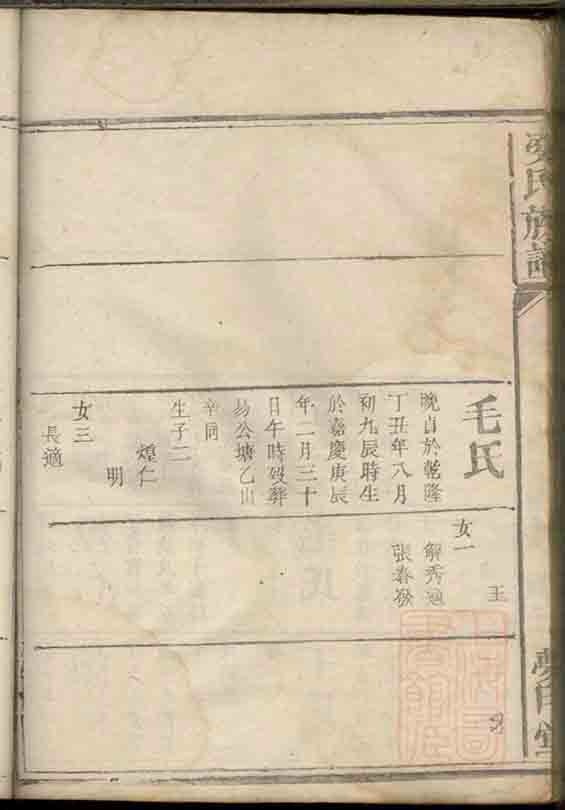 毛氏
晚貞於乾隆
丁丑年八月
初九辰時生
於嘉慶庚辰
年二月三十
日午時歿葬
易公塘乙山
辛向
生子二
煌仁
明
女三
長適
女一
解秀適
張春
氏族譜